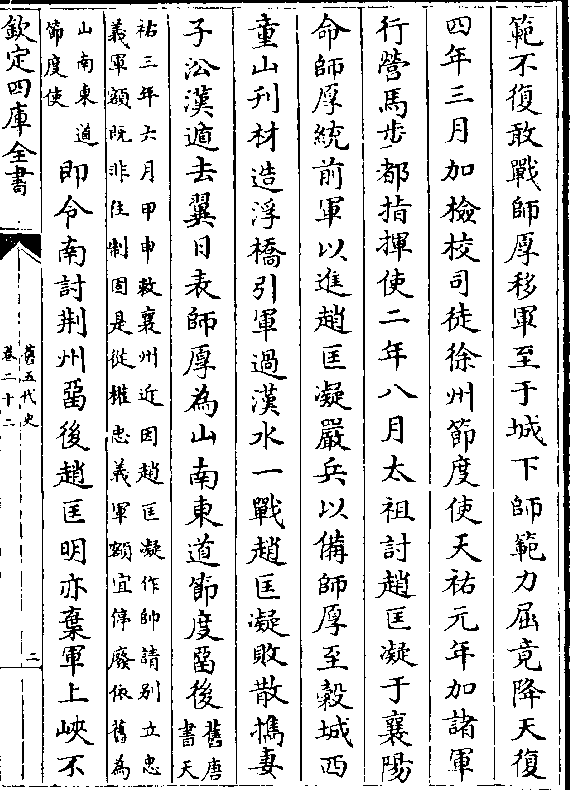 範不復敢戰師厚移軍至于城下師範力屈竟降天復
四年三月加檢校司徒徐州節度使天祐元年加諸軍
行營馬步都指揮使二年八月太祖討趙匡凝于襄陽
命師厚統前軍以進趙匡凝嚴兵以備師厚至穀城西
童山刋材造浮橋引軍過漢水一戰趙匡凝敗散擕妻
子沿漢遁去翼日表師厚為山南東道節度留後
舊唐
書天
祐三年六月甲申敕襄州近因趙匡凝作帥請别立忠
義軍額既非往制固是從權忠義軍額宜停廢依舊為
山南東道
節度使
即令南討荆州留後趙匡明亦棄軍上峽不
欽定四庫全書
舊五代史
卷二十二
二